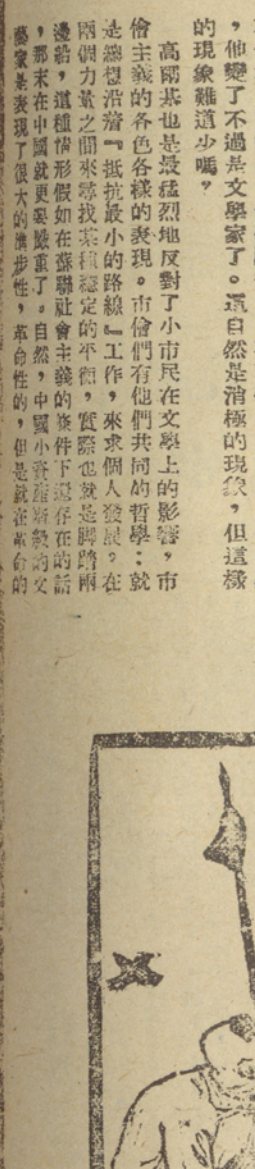 ，他變了不過是文學家了。這自然是消極的現象，但這樣
的現象難道少嗎？
高爾基也是最猛烈地反對了小市民在文學上的影響，市
儈主義的各色各樣的表現。市儈們有他們共同的哲學：就
是總想沿着『抵抗最小的路線』工作，來求個人發展。在
兩個力量之間來尋找某種穩定的平衡，實際也就是脚踏兩
邊船，這種情形假如在蘇聯社會主義的條件下還存在的話
，那末在中國就更嚴重了。自然，中國小資產階級的文
藝家是表現了很大的進步性，革命性的，但是就在革命的